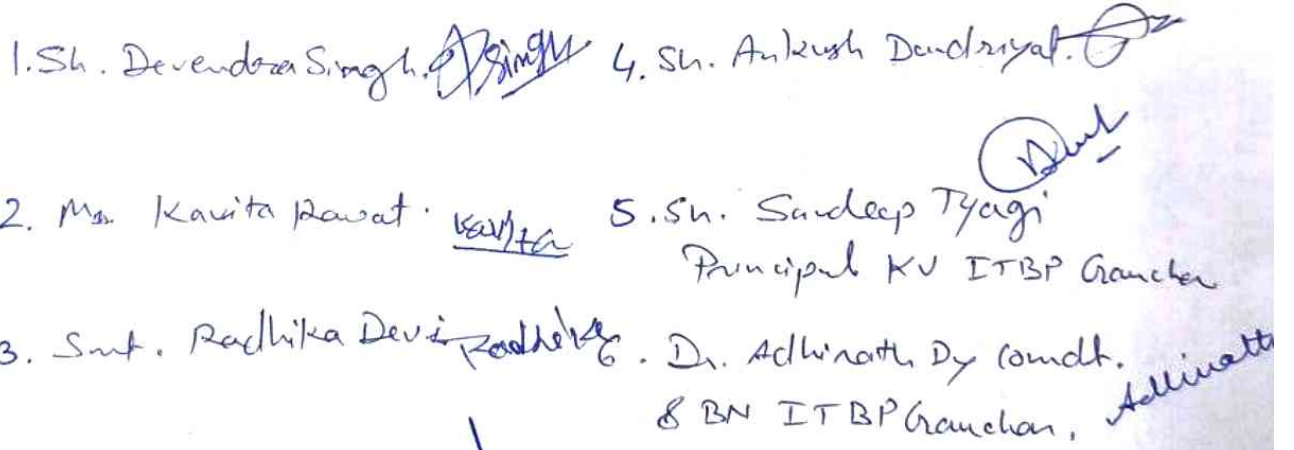 1. Sh. Devendra Singh. Singh
2. Ms. Kavita Rawat. Kavita
3. Smt. Radhika Devi Radhika
4. Sh. Ankush Dandriyal.
5. Sh. Sandeep Tyagi
Principal KV ITBP Gauchar
6. Dr. Adhinath Dy Comdt.
8 BN ITBP Gauchar, Adhinath